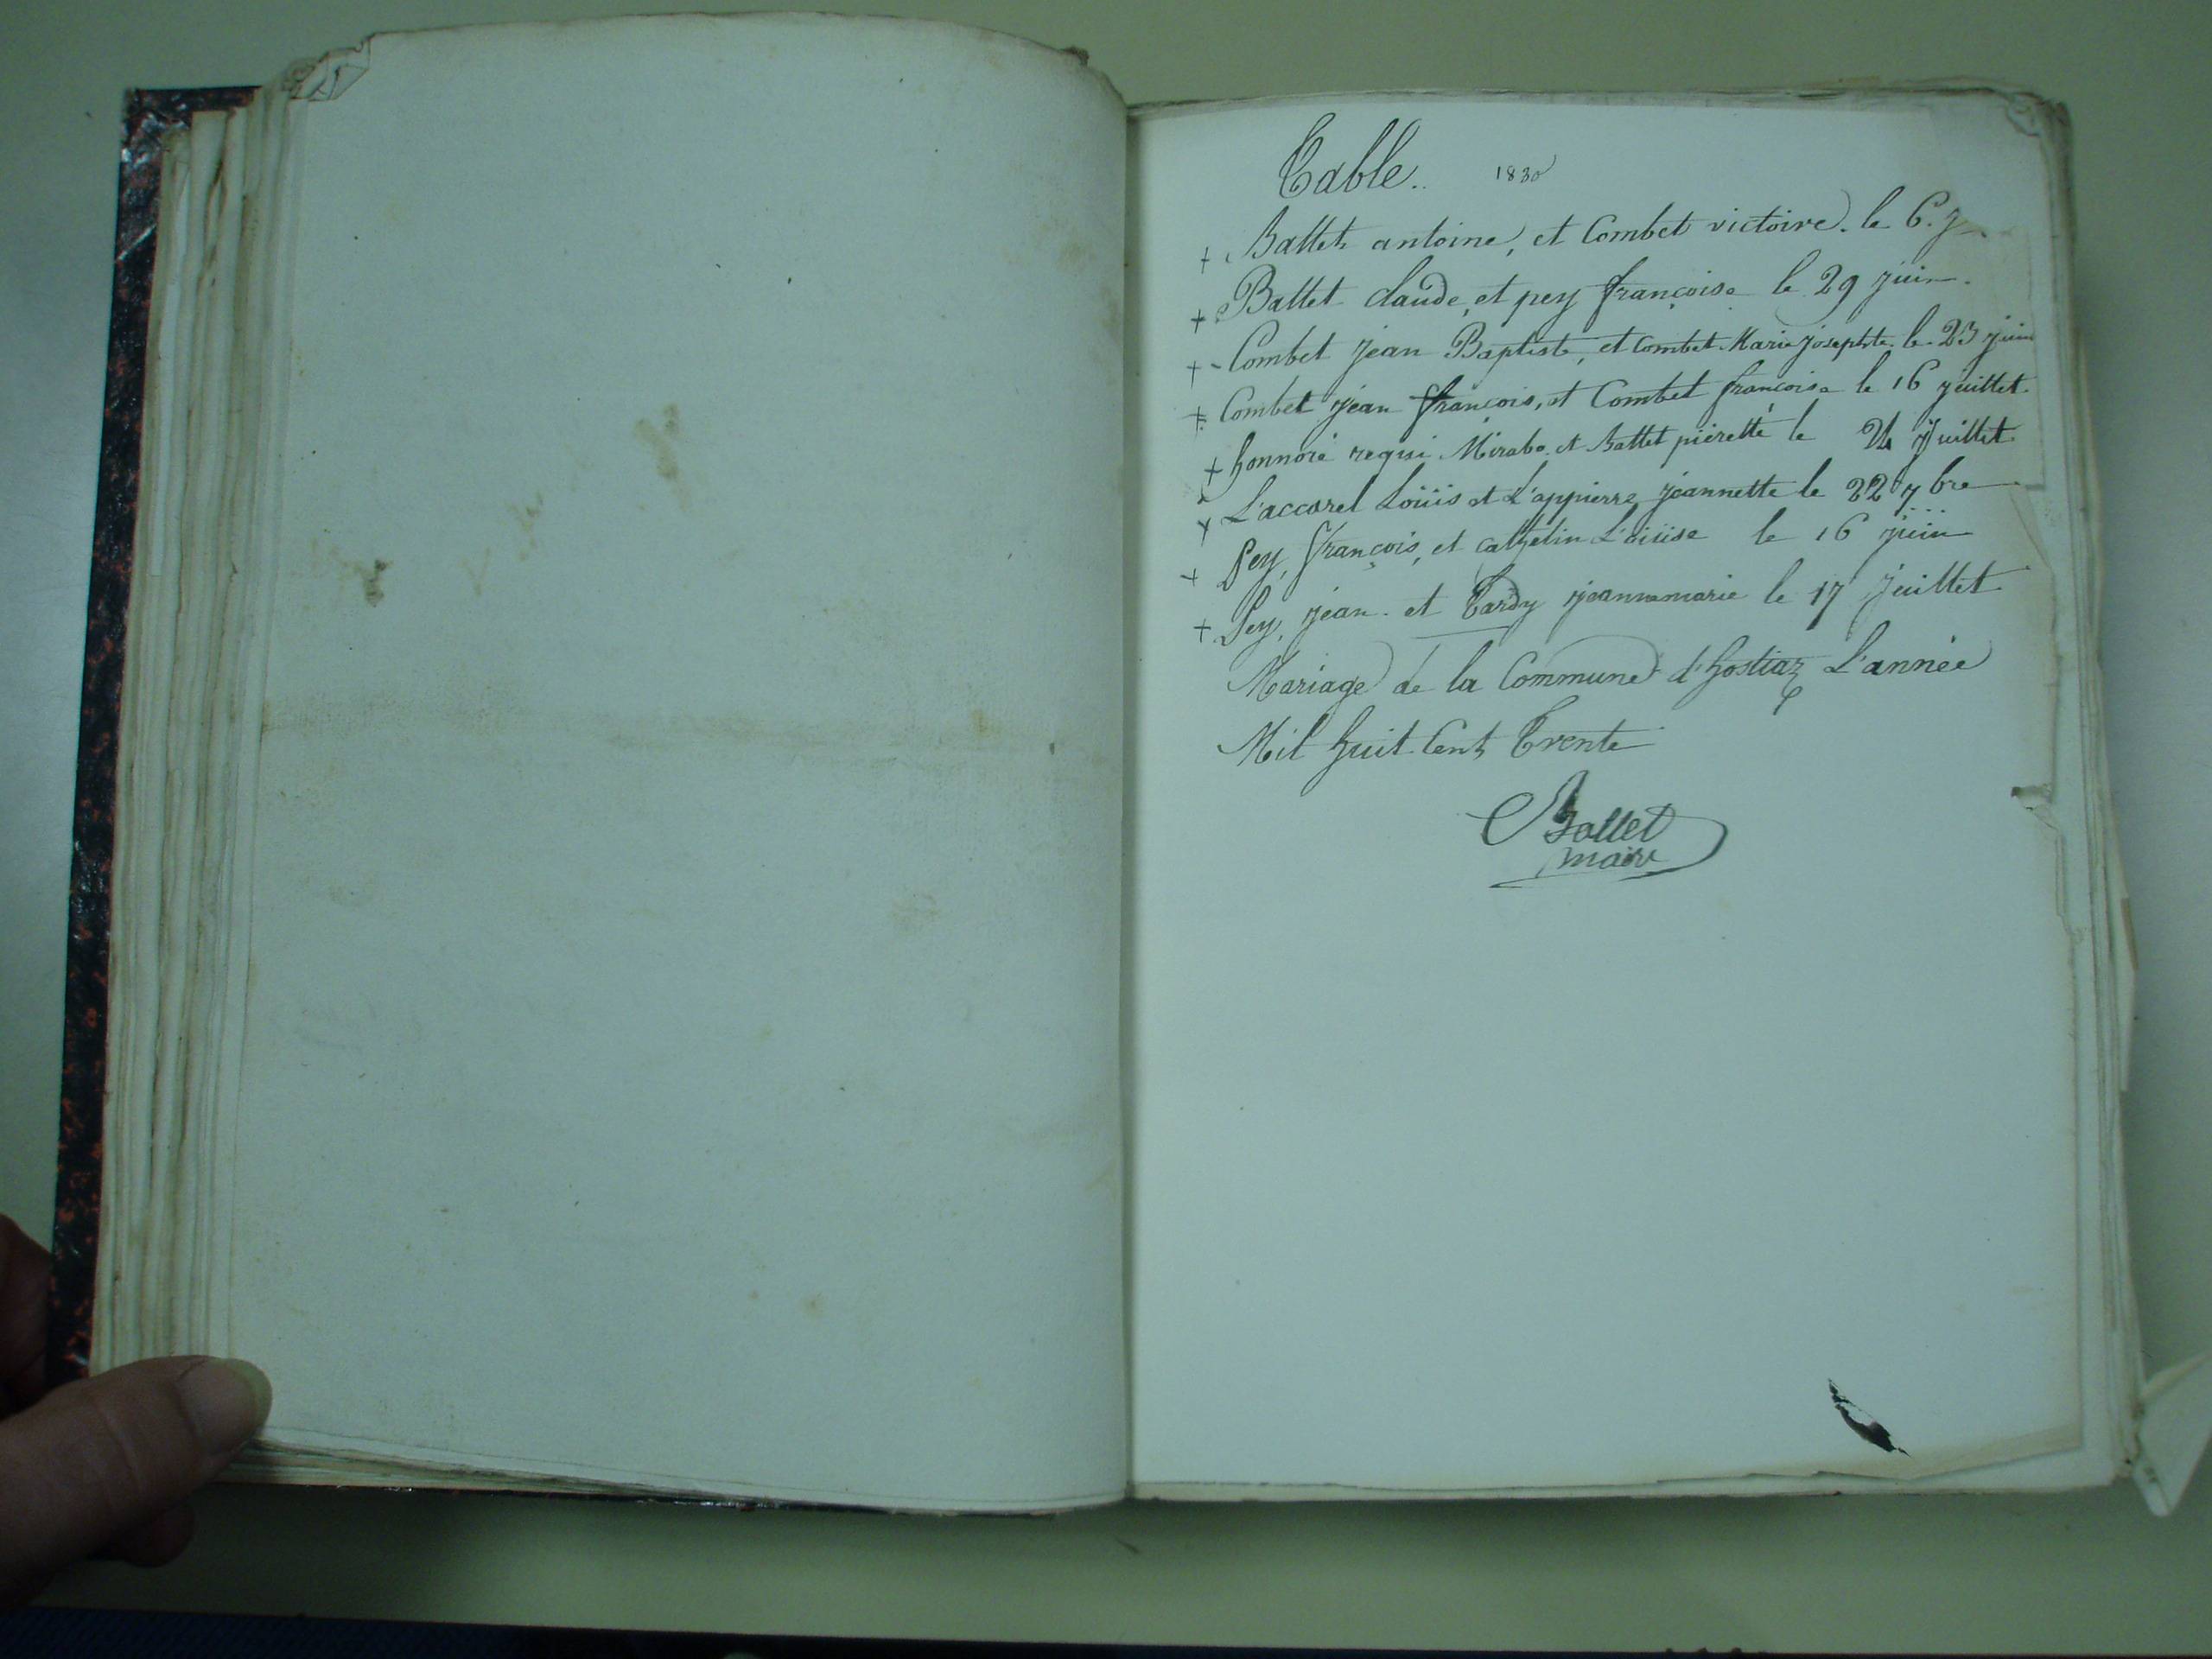 Table. 1830
+ Ballet antoine, et Combet victoire. le 6.
+ Ballet claude, et pey françoise le 29 juin.
+ - Combet jean Baptiste, et Combet Marie josephte. le 23 juin
+ Combet jean françois, et Combet françoise le 16 juillet.
+ honnoré requi Mirabo et Ballet piérette le 24 Juillet.
+ L'accorel Loüis et L'appierre jeannette le 22 7bre
+ Pey, François, et catzelin L'oüise le 16 juin
+ Pey, jean et Tardy jeannemarie le 17 Juillet
Mariage de la Commune d'hostiaz L'année
Mil huit Cent Trente
Ballet
maire